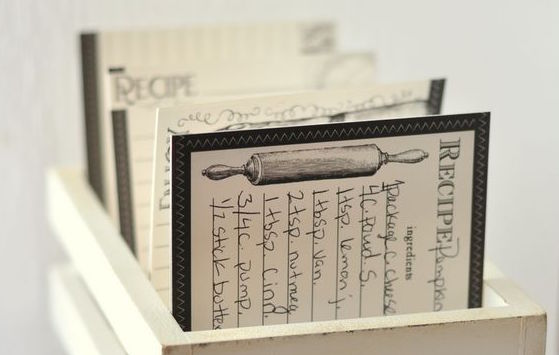 RECIPE Pumpkin
ingredients
1 package c. cheese
4 c. Pwd S.
1 tsp. lemon j.
1 tbsp. Van.
2 tsp. nutmeg
1 tbsp. Cind.
3/4 c. pump.
1/2 stick butter
RECIPE